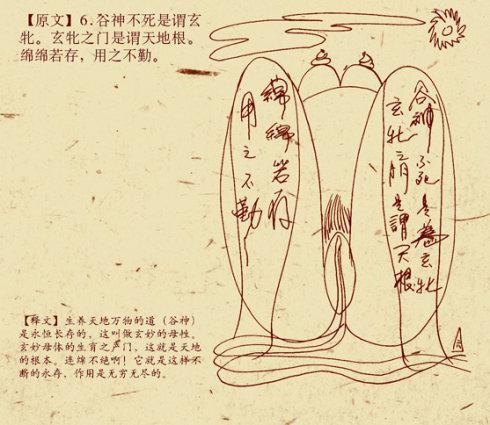 【原文】6.谷神不死是谓玄
牝。玄牝之门是谓天地根。
绵绵若存，用之不勤。
谷神不死是為玄牝
玄牝之门是謂天根
綿綿若存
用之不勤
【释文】生养天地万物的道（谷神）
是永恒长存的，这叫做玄妙的母性。
玄妙母体的生育之产门，这就是天地
的根本。连绵不绝啊！它就是这样不
断的永存，作用是无穷无尽的。